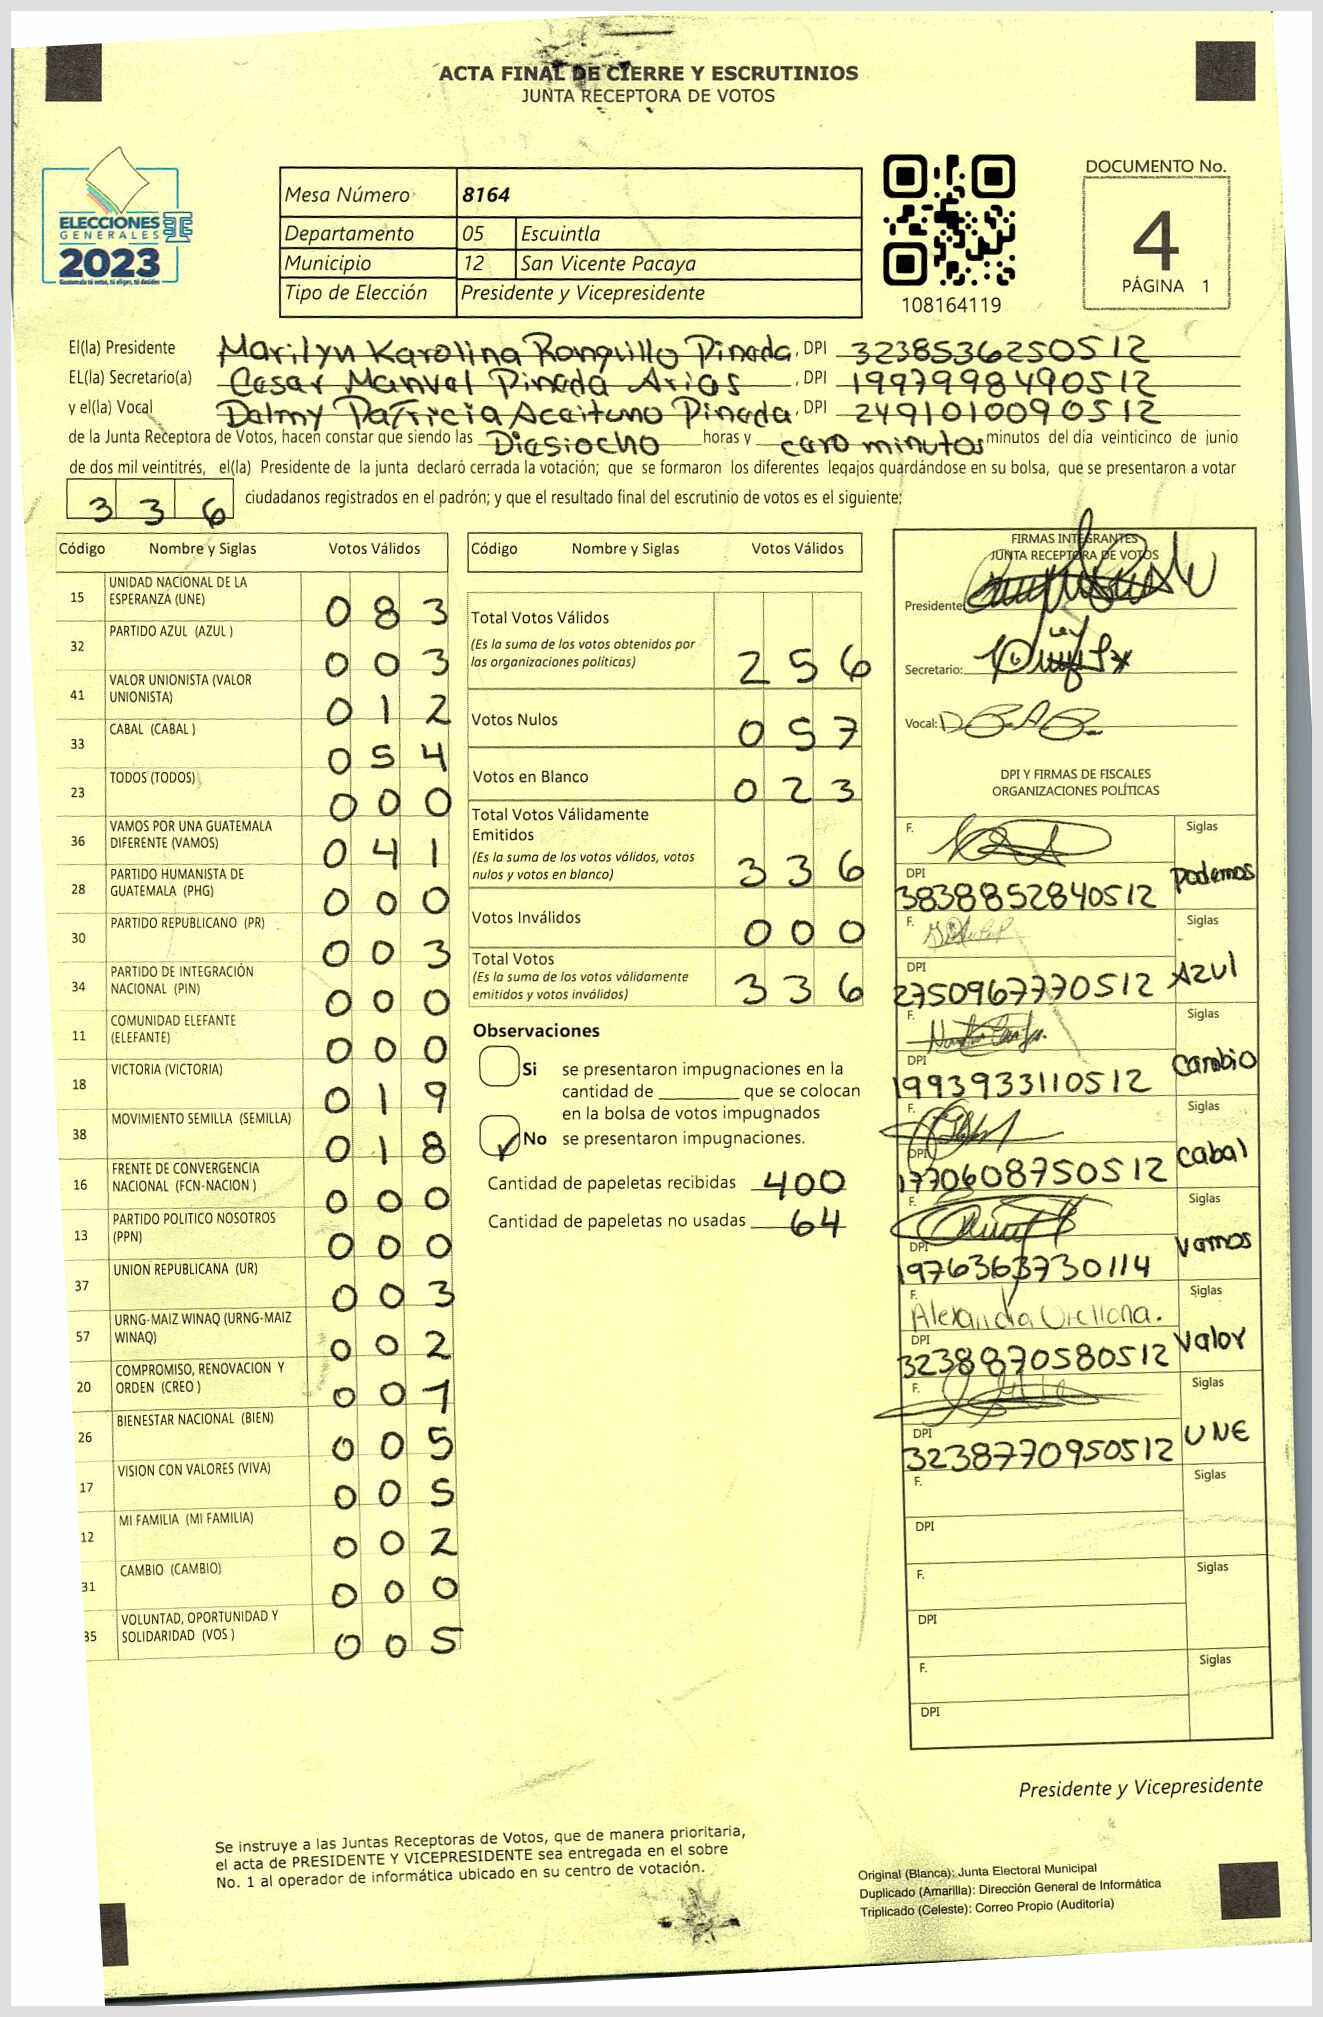 ACTA FINAL DE CIERRE Y ESCRUTINIOS
JUNTA RECEPTORA DE VOTOS
ELECCIONES
GENERALES
2023
Guatemala tú votas, tú eliges, tú decides
TSE
Mesa Número 8164
Departamento 05 Escuintla
Municipio 12 San Vicente Pacaya
Tipo de Elección Presidente y Vicepresidente
108164119
DOCUMENTO No.
4
PÁGINA 1
El(la) Presidente Marilyn Karolina Ronquillo Pineda, DPI 3238536250512
EL(la) Secretario(a) Cesar Manuel Pineda Arias, DPI 1997998490512
y el(la) Vocal Dalmy Patricia Aceituno Pineda, DPI 2491010090512
de la Junta Receptora de Votos, hacen constar que siendo las Diesiocho horas y cero minutos minutos del día veinticinco de junio
de dos mil veintitrés, el(la) Presidente de la junta declaró cerrada la votación; que se formaron los diferentes legajos quardándose en su bolsa, que se presentaron a votar
336 ciudadanos registrados en el padrón; y que el resultado final del escrutinio de votos es el siguiente:
Código Nombre y Siglas Votos Válidos
15 UNIDAD NACIONAL DE LA
ESPERANZA (UNE) 083
32 PARTIDO AZUL (AZUL ) 003
41 VALOR UNIONISTA (VALOR
UNIONISTA) 012
33 CABAL (CABAL ) 054
23 TODOS (TODOS) 000
36 VAMOS POR UNA GUATEMALA
DIFERENTE (VAMOS) 041
28 PARTIDO HUMANISTA DE
GUATEMALA (PHG) 000
30 PARTIDO REPUBLICANO (PR) 003
34 PARTIDO DE INTEGRACIÓN
NACIONAL (PIN) 000
11 COMUNIDAD ELEFANTE
(ELEFANTE) 000
18 VICTORIA (VICTORIA) 019
38 MOVIMIENTO SEMILLA (SEMILLA) 018
16 FRENTE DE CONVERGENCIA
NACIONAL (FCN-NACION ) 000
13 PARTIDO POLITICO NOSOTROS
(PPN) 000
37 UNION REPUBLICANA (UR) 003
57 URNG-MAIZ WINAQ (URNG-MAIZ
WINAQ) 002
20 COMPROMISO, RENOVACION Y
ORDEN (CREO ) 001
26 BIENESTAR NACIONAL (BIEN) 005
17 VISION CON VALORES (VIVA) 005
12 MI FAMILIA (MI FAMILIA) 002
31 CAMBIO (CAMBIO) 000
35 VOLUNTAD, OPORTUNIDAD Y
SOLIDARIDAD (VOS ) 005
Código Nombre y Siglas Votos Válidos
Total Votos Válidos
(Es la suma de los votos obtenidos por
las organizaciones políticas) 256
Votos Nulos 057
Votos en Blanco 023
Total Votos Válidamente
Emitidos
(Es la suma de los votos válidos, votos
nulos y votos en blanco) 336
Votos Inválidos 000
Total Votos
(Es la suma de los votos válidamente
emitidos y votos inválidos) 336
Observaciones
Si se presentaron impugnaciones en la
cantidad de ________ que se colocan
en la bolsa de votos impugnados
No se presentaron impugnaciones.
Cantidad de papeletas recibidas 400
Cantidad de papeletas no usadas 64
FIRMAS INTEGRANTES
JUNTA RECEPTORA DE VOTOS
Presidente:
Secretario:
Vocal:
DPI Y FIRMAS DE FISCALES
ORGANIZACIONES POLÍTICAS
F. Siglas
DPI Podemos
3838852840512
F. Siglas
DPI AZUl
2750967770512
F. Siglas
DPI cambio
1993933110512
F. Siglas
DPI cabal
1770608750512
F. Siglas
DPI vamos
1976363730114
F. Alexandra Orellana. Siglas
DPI valor
3238870580512
F. Siglas
DPI UNE
3238770950512
F. Siglas
DPI
F. Siglas
DPI
F. Siglas
DPI
Presidente y Vicepresidente
Se instruye a las Juntas Receptoras de Votos, que de manera prioritaria,
el acta de PRESIDENTE Y VICEPRESIDENTE sea entregada en el sobre
No. 1 al operador de informática ubicado en su centro de votación.
Original (Blanca): Junta Electoral Municipal
Duplicado (Amarilla): Dirección General de Informática
Triplicado (Celeste): Correo Propio (Auditoría)